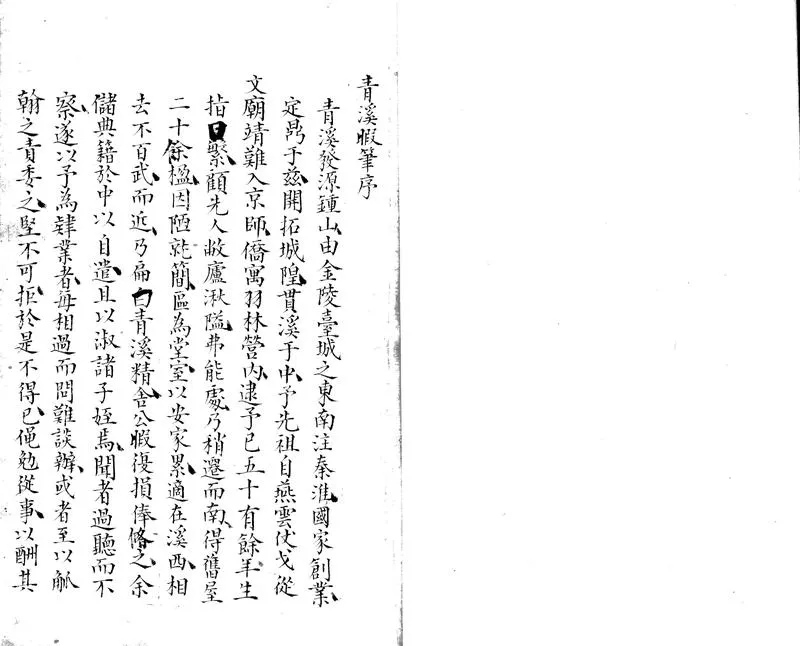 青溪暇筆序
青溪發源鍾山由金陵臺城之東南注秦淮國家創業
定鼎于兹開拓城隍貫溪于中予先祖自燕雲仗戈從
文廟靖難入京師僑寓羽林營内逮予已五十有餘年生
指日繁顧先人敝廬湫隘弗能處乃稍遷而南得舊屋
二十餘楹因陋就簡區為堂室以安家累適在溪西相
去不百武而近乃扁曰青溪精舍公暇復損俸脩之余
儲典籍於中以自遣且以淑諸子姪焉聞者過聽而不
察遂以予為肄業者每相過而問難談辦或者至以觚
翰之責委之堅不可拒於是不得已僶勉從事以酬其